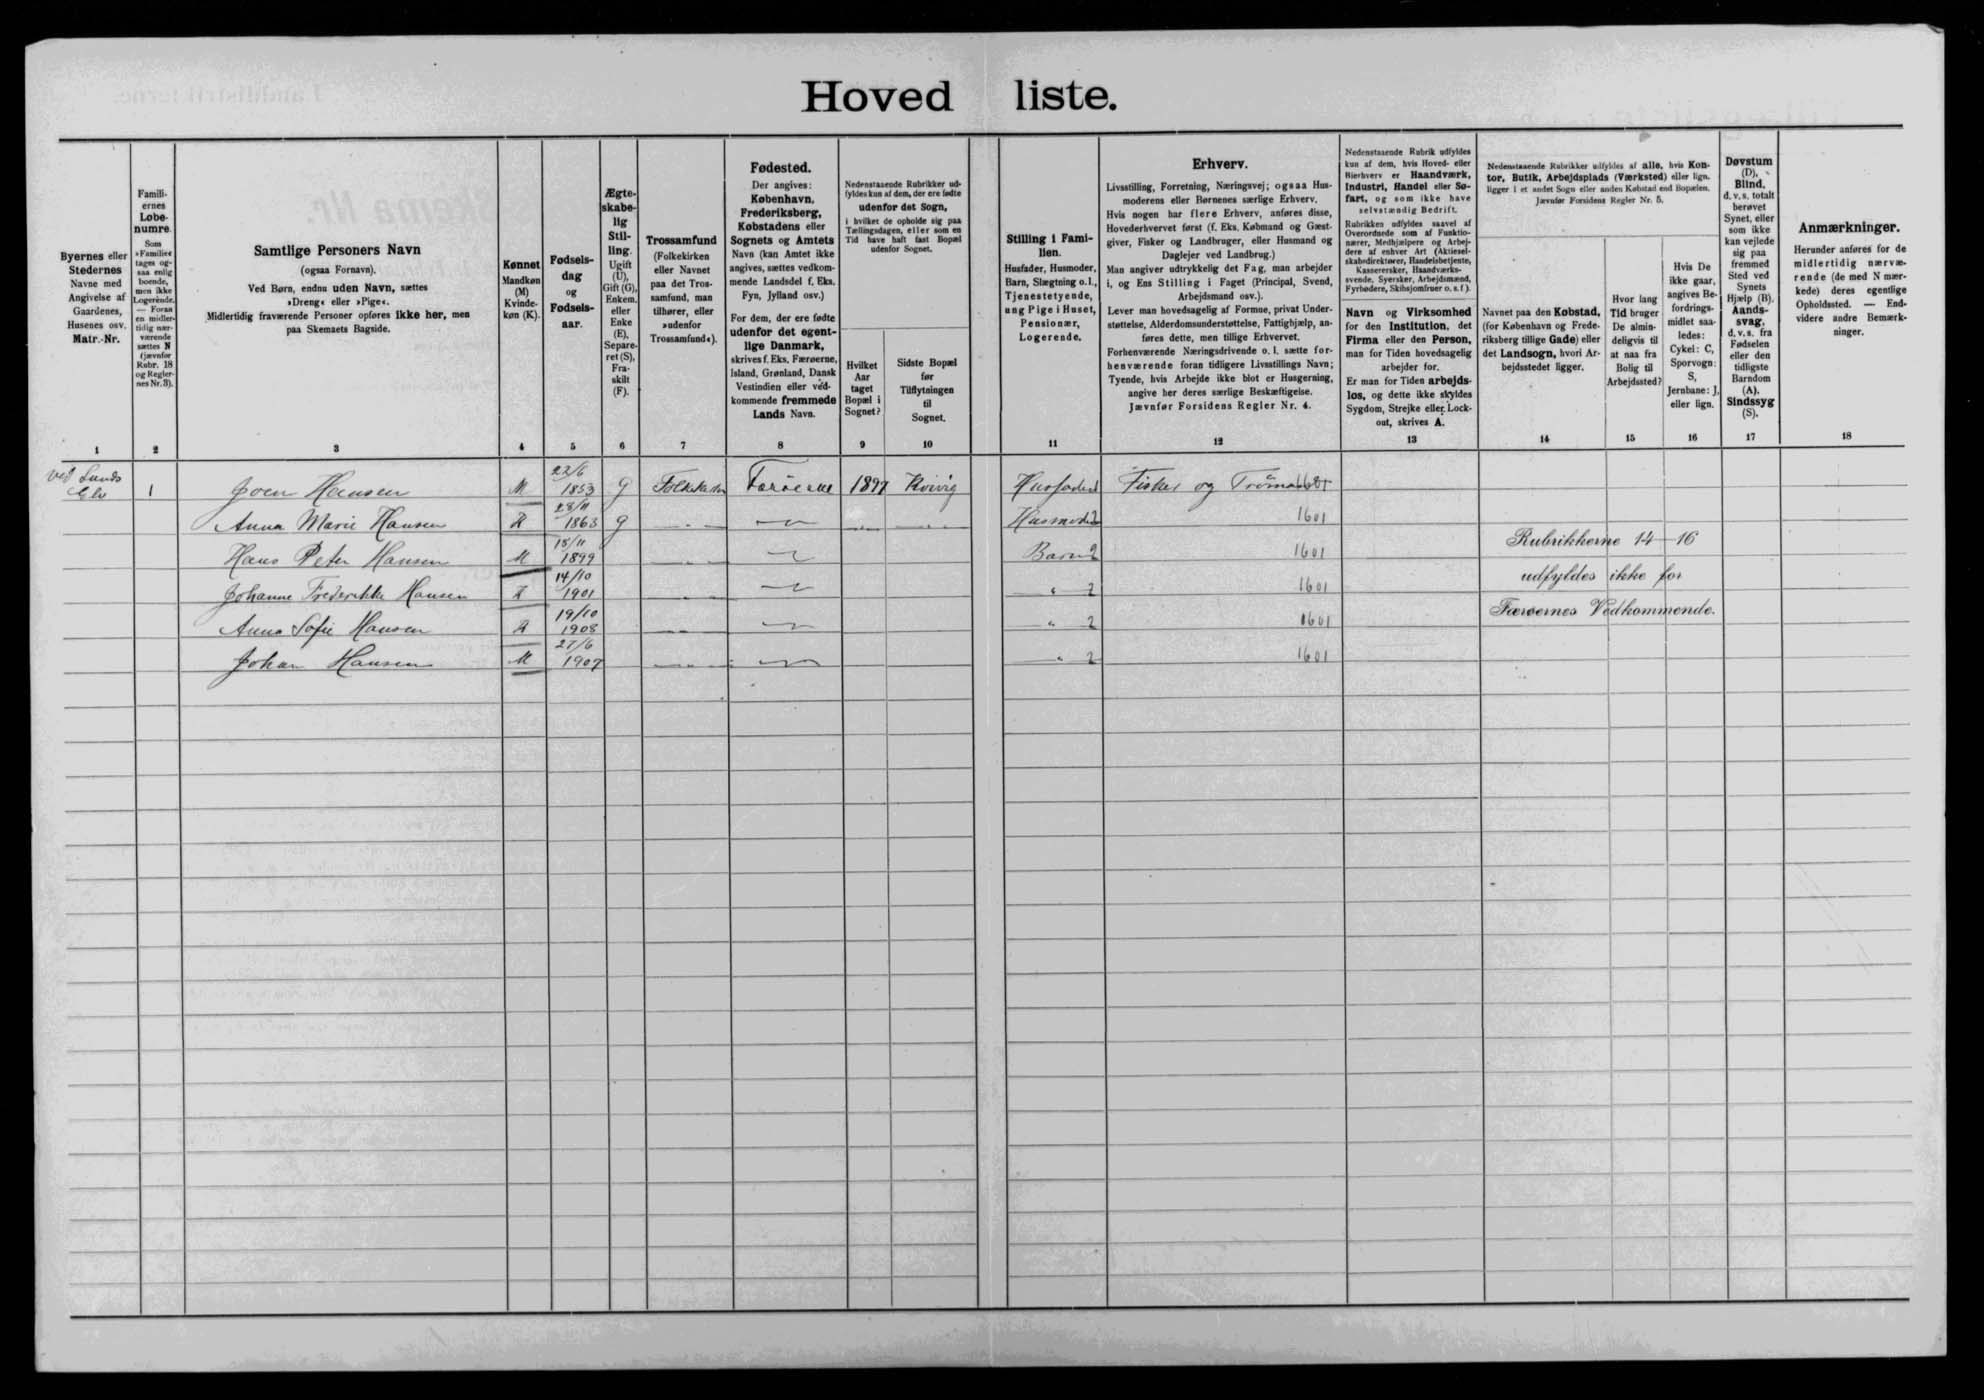 Hoved liste.
Byernes eller
Stedernes
Navne med
Angivelse af
Gaardenes,
Husenes osv.
Matr.-Nr.
1
Famili-
ernes
Løbe-
numre.
Som
»Familie«
tages og-
saa enlig
boende,
men ikke
Logerende.
— Foran
en midler-
tidig nær-
værende
sættes N
(jævnfør
Rubr. 18
og Regler-
nes Nr. 3).
2
Samtlige Personers Navn
(ogsaa Fornavn).
Ved Børn, endnu uden Navn, sættes
»Dreng« eller »Pige«.
Midlertidig fraværende Personer opføres ikke her, men
paa Skemaets Bagside.
3
Kønnet
Mandkøn
(M)
Kvinde-
køn (K).
4
Fødsels-
dag
og
Fødsels-
aar.
5
Ægte-
skabe-
lig
Stil-
ling.
Ugift
(U),
Gift (G),
Enkem.
eller
Enke
(E),
Separe-
ret (S),
Fra-
skilt
(F).
6
Trossamfund
(Folkekirken
eller Navnet
paa det Tros-
samfund, man
tilhører, eller
»udenfor
Trossamfund«).
7
Fødested.
Der angives:
København,
Frederiksberg,
Købstadens eller
Sognets og Amtets
Navn (kan Amtet ikke
angives, sættes vedkom-
mende Landsdel f. Eks.
Fyn, Jylland osv.)
For dem, der ere fødte
udenfor det egent-
lige Danmark,
skrives f. Eks. Færøerne,
Island, Grønland, Dansk
Vestindien eller ved-
kommende fremmede
Lands Navn.
8
Nedenstaaende Rubrikker ud-
fyldes kun af dem, der ere fødte
udenfor det Sogn,
i hvilket de opholde sig paa
Tællingsdagen, eller som en
Tid have haft fast Bopæl
udenfor Sognet.
Hvilket
Aar
taget
Bopæl i
Sognet?
9
Sidste Bopæl
før
Tilflytningen
til
Sognet.
10
Stilling i Fami-
lien.
Husfader, Husmoder,
Barn, Slægtning o.l.,
Tjenestetyende,
ung Pige i Huset,
Pensionær,
Logerende.
11
Erhverv.
Livsstilling, Forretning, Næringsvej; ogsaa Hus-
moderens eller Børnenes særlige Erhverv.
Hvis nogen har flere Erhverv, anføres disse,
Hovederhvervet først (f. Eks. Købmand og Gæst-
giver, Fisker og Landbruger, eller Husmand og
Daglejer ved Landbrug.)
Man angiver udtrykkelig det Fag, man arbejder
i, og Ens Stilling i Faget (Principal, Svend,
Arbejdsmand osv.).
Lever man hovedsagelig af Formue, privat Under-
støttelse, Alderdomsunderstøttelse, Fattighjælp, an-
føres dette, men tillige Erhvervet.
Forhenværende Næringsdrivende o. l. sætte for-
henværende foran tidligere Livsstillings Navn;
Tyende, hvis Arbejde ikke blot er Husgerning,
angive her deres særlige Beskæftigelse.
Jævnfør Forsidens Regler Nr. 4.
12
Nedenstaaende Rubrik udfyldes
kun af dem, hvis Hoved- eller
Bierhverv er Haandværk,
Industri, Handel eller Sø-
fart, og som ikke have
selvstændig Bedrift.
Rubrikken udfyldes saavel af
Overordnede som af Funktio-
nærer, Medhjælpere og Arbej-
dere af enhver Art (Aktiesel-
skabsdirektører, Handelsbetjente,
Kassererske, Haandværks-
svende, Syersker, Arbejdsmænd,
Fyrbødere, Skibsjomfruer o. s. f.).
Navn og Virksomhed
for den Institution, det
Firma eller den Person,
man for Tiden hovedsagelig
arbejder for.
Er man for Tiden arbejds-
løs, og dette ikke skyldes
Sygdom, Strejke eller Lock-
out, skrives A.
13
Nedenstaaende Rubrikker udfyldes af alle, hvis Kon-
tor, Butik, Arbejdsplads (Værksted) eller lign.
ligger i et andet Sogn eller anden Købstad end Bopælen.
Jævnfør Forsidens Regler Nr. 5.
Navnet paa den Købstad,
(for København og Frede-
riksberg tillige Gade) eller
det Landsogn, hvori Ar-
bejdsstedet ligger.
14
Hvor lang
Tid bruger
De almin-
deligvis til
at naa fra
Bolig til
Arbejdssted?
15
Hvis De
ikke gaar,
angives Be-
fordrings-
midlet saa-
ledes:
Cykel: C,
Sporvogn:
S,
Jernbane: J,
eller lign.
16
Døvstum
(D).
Blind,
d. v. s. totalt
berøvet
Synet, eller
som ikke
kan vejlede
sig paa
fremmed
Sted ved
Synets
Hjælp (B).
Aands-
svag,
d. v. s. fra
Fødselen
eller den
tidligste
Barndom
(A).
Sindssyg
(S).
17
Anmærkninger.
Herunder anføres for de
midlertidig nærvæ-
rende (de med N mær-
kede) deres egentlige
Opholdssted. — End-
videre andre Bemærk-
ninger.
18
ved Lunds
Elv 1 Joen Hansen M 22/6 1853 G Folkekirken Færøerne 1897 Kvivig Husfader Fisker og 1601
Anna Marie Hansen K 28/11 1863 G Husmoder 2 1601
Hans Peter Hansen M 18/11 1899 Barn 2 1601
Johanne Frederikke Hansen K 14/10 1901 " 2 1601
Anna Sofie Hansen K 19/10 1908 " 2 1601
Johan Hansen M 27/6 1907 " 2 1601
Rubrikkerne 14—16
udfyldes ikke for
Færøernes Vedkommende.